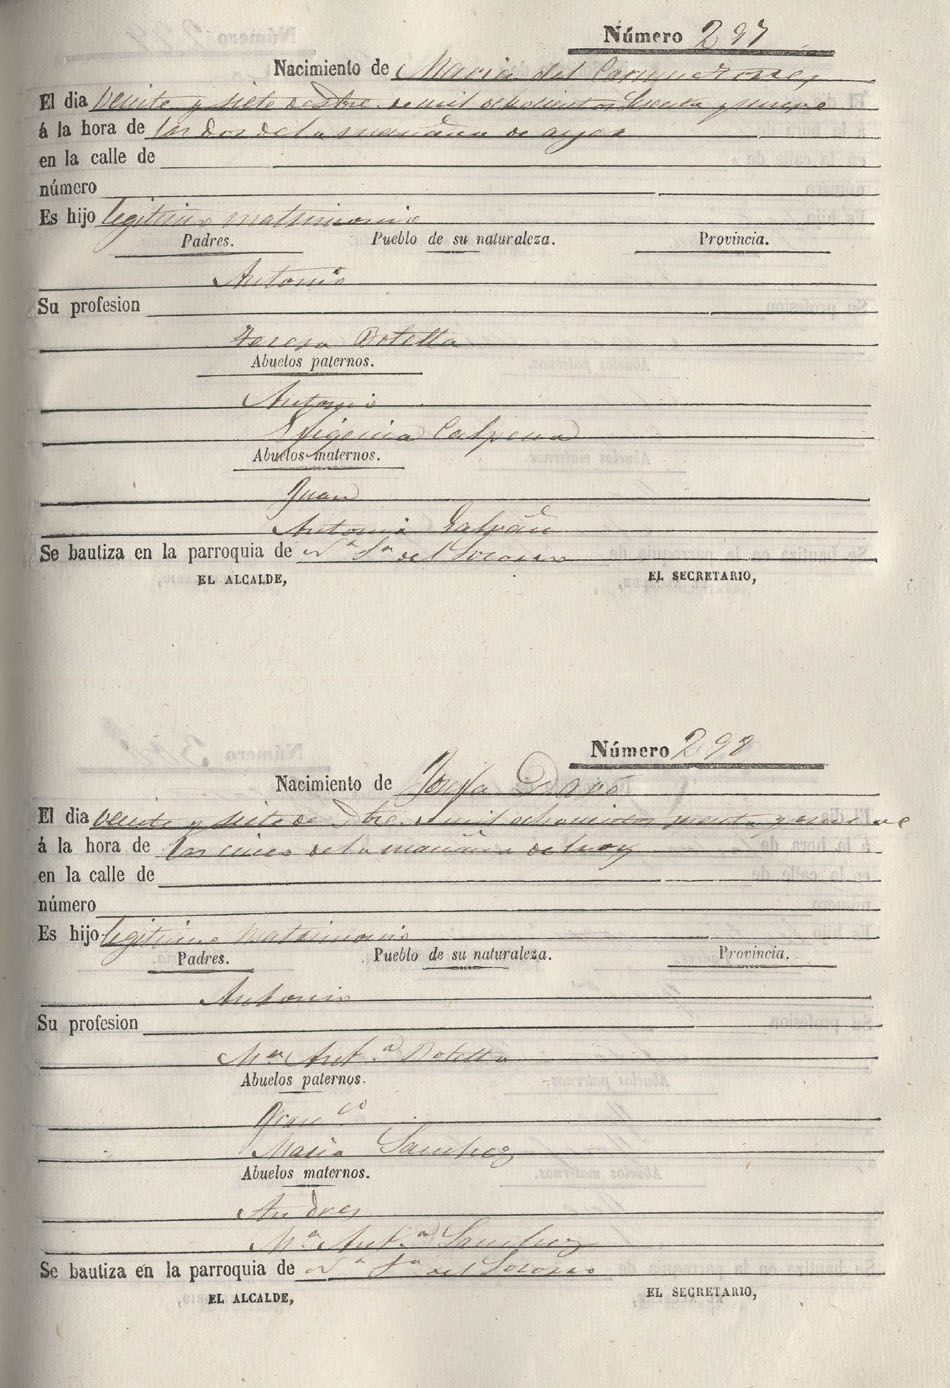 Número 297
Nacimiento de Maria del Carmen Torres
El dia veinte y siete de Dbre. de mil ochocientos sesenta y nueve
á la hora de las dos de la mañana de ayer
en la calle de
número
Es hijo legitimo matrimonio
Padres. Pueblo de su naturaleza. Provincia.
Antonio
Su profesion
Teresa Botella
Abuelos paternos.
Antonio
Efigenia Calpena
Abuelos maternos.
Juan
Antonia Galvañ
Se bautiza en la parroquia de Nª Sra del Socorro
EL ALCALDE, EL SECRETARIO,
Número 298
Nacimiento de Josefa Davó
El dia veinte y siete de Dbre. de mil ochocientos sesenta y nueve
á la hora de las cinco de la mañana de hoy
en la calle de
número
Es hijo legitimo matrimonio
Padres. Pueblo de su naturaleza. Provincia.
Antonio
Su profesion
Mª Antª Botella
Abuelos paternos.
Franco
Maria Sanchez
Abuelos maternos.
Andres
Mª Antª Sanchez
Se bautiza en la parroquia de Nª Sª del Socorro
EL ALCALDE, EL SECRETARIO,